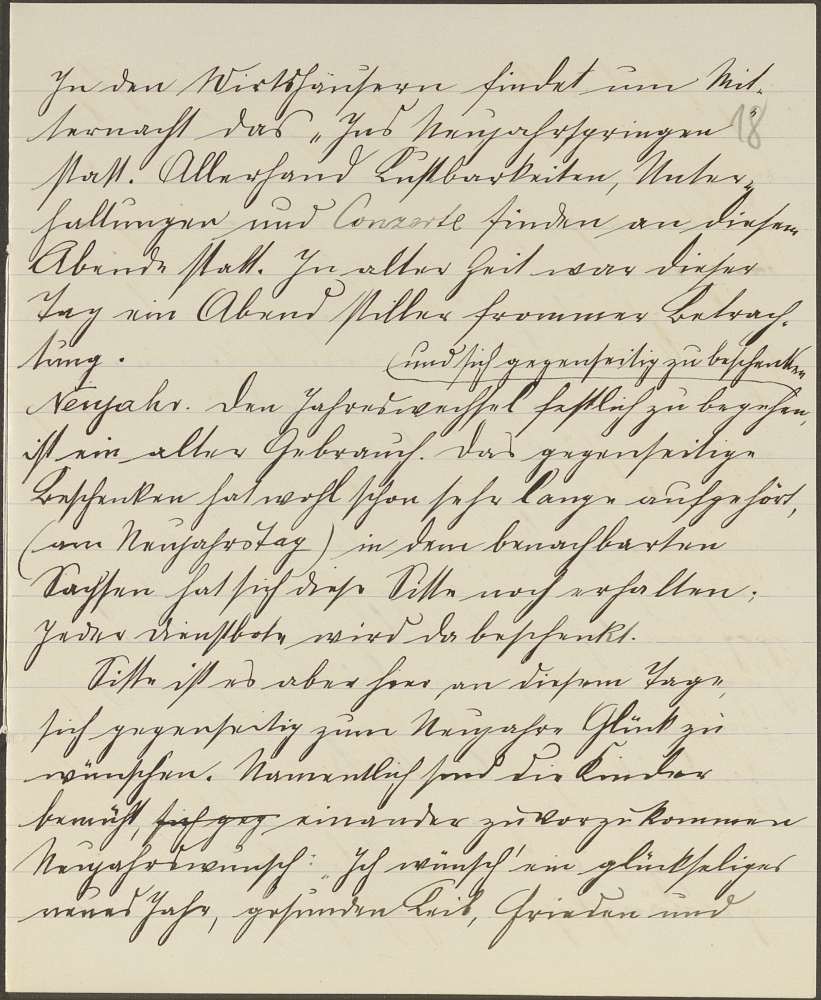 In den Wirtshäusern findet um Mit-
ternacht das „Ins Neujahrspringen"
18
statt. Allerhand Lustbarkeiten, Unter-
haltungen und Conzerte finden an diesem
Abende statt. In alter Zeit war dieser
Tag ein Abend stiller frommer Betrach-
tung.
(und sich gegenseitig zu beschenken
Neujahr. Den Jahreswechsel festlich zu begehen,
ist ein alter Gebrauch. Das gegenseitige
Beschenken hat wohl schon sehr lange aufgehört,
(am Neujahrstag) in dem benachbarten
Sachsen hat sich diese Sitte noch erhalten;
Jeder Dienstbote wird da beschenkt.
Sitte ist es aber hier an diesem Tage,
sich gegenseitig zum Neujahre Glück zu
wünschen. Namentlich sind die Kinder
bemüht, sich geg einander zuvorzukommen
Neujahrswunsch: „Ich wünsch' ein glückseliges
neues Jahr, gesunden Leib, Frieden und